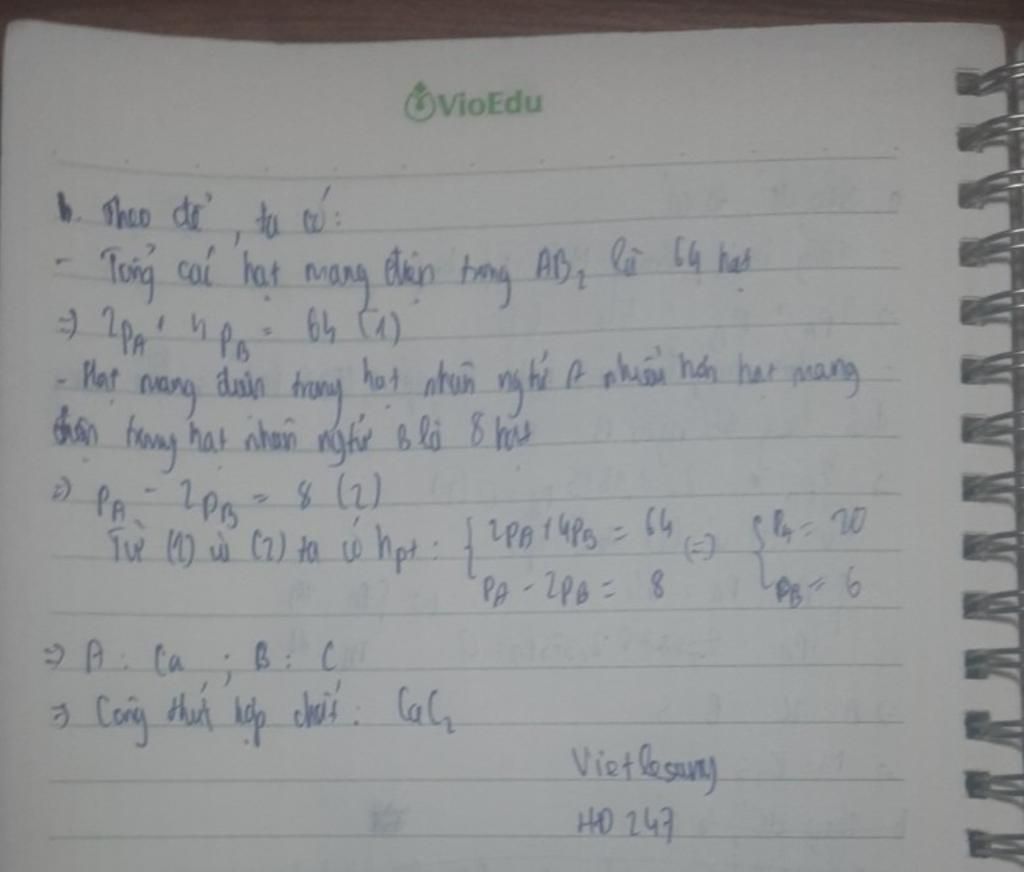 VioEdu
b. Theo đề, ta có:
- Tổng các hạt mang điện trong AB₂ là 64 hạt
=> 2pA + 4pB = 64 (1)
- Hạt mang điện trong hạt nhân ngtử A nhiều hơn hạt mang
điện trong hạt nhân ngtử B là 8 hạt
=> pA - 2pB = 8 (2)
Từ (1) và (2) ta có hpt: { 2pA + 4pB = 64 (=) { pA = 20
pA - 2pB = 8 pB = 6
=> A: Ca ; B: C
=> Công thức hợp chất: CaC₂
Vietlesang
HD 247